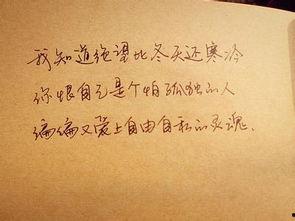 我知道绝望比冬天还寒冷
你恨自己是个怕孤独的人
偏偏又爱上自由自私的灵魂、